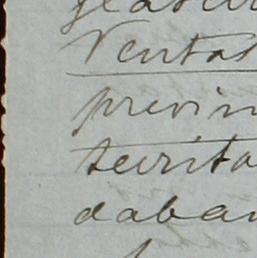 Ventas
provin
territo
daban